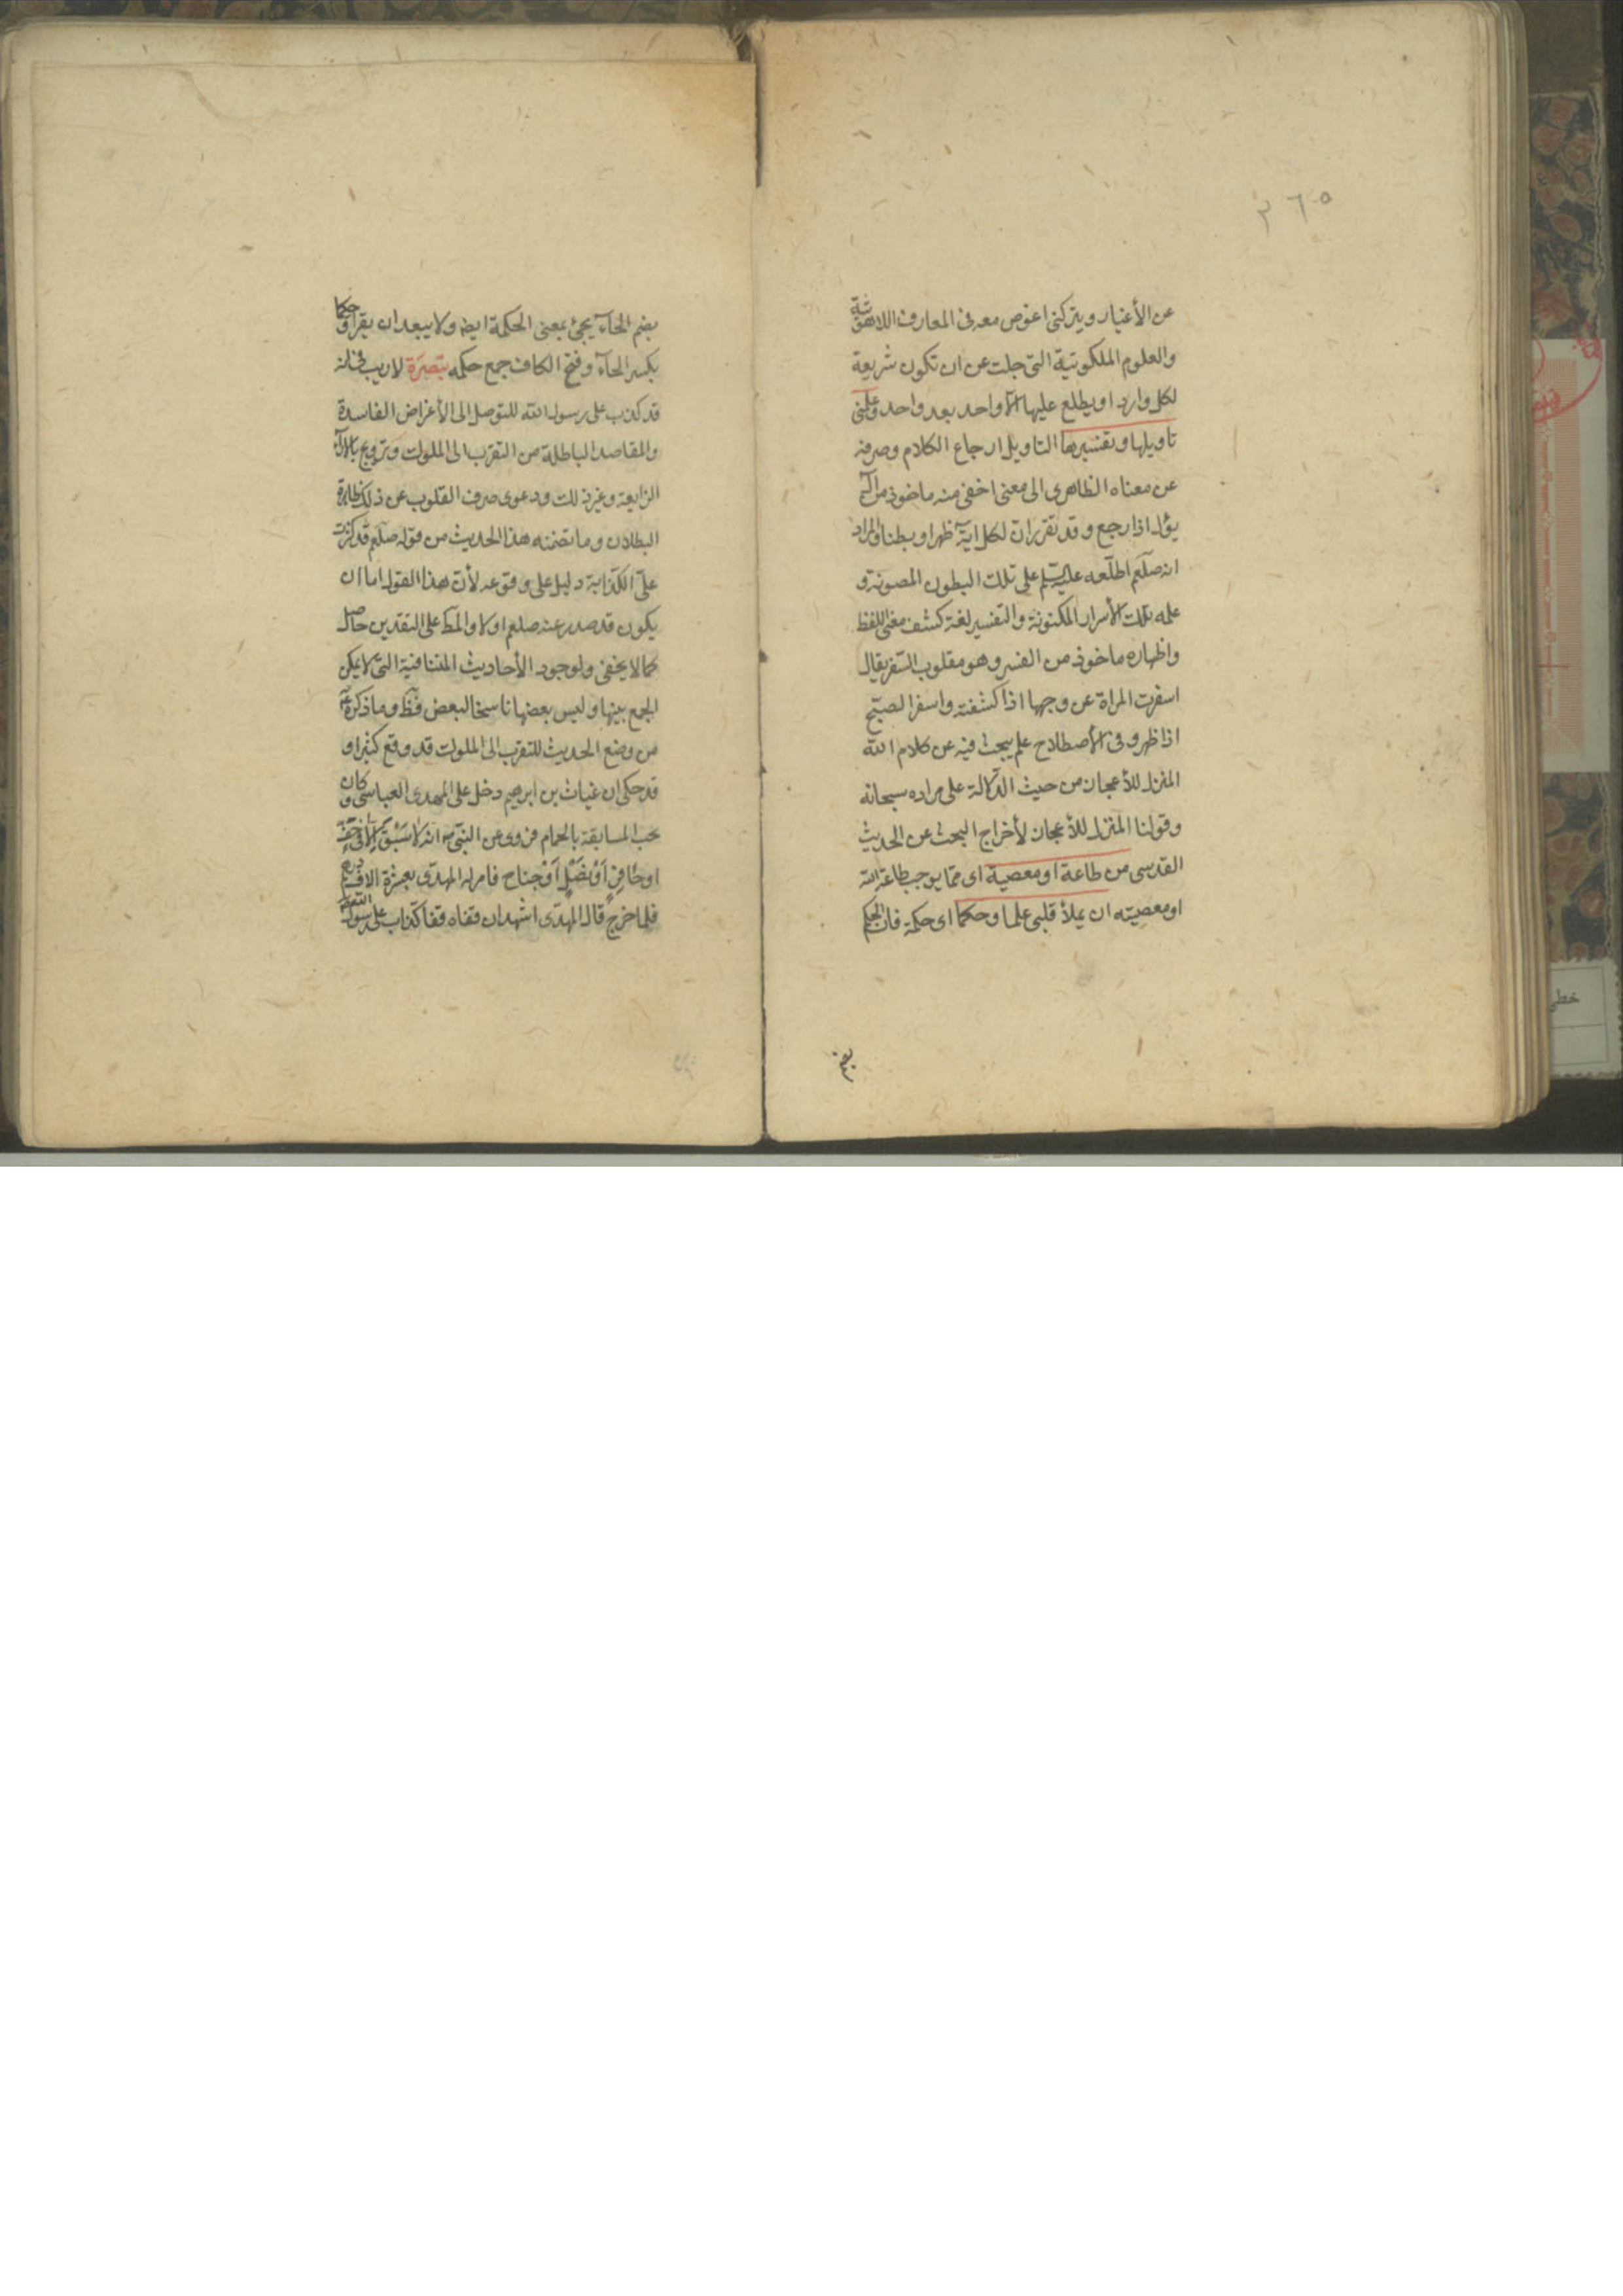 ٣٦٥
عن الأغيار ويتركنى اخوض معه فى المعارف اللاهوتية
والعلوم الملكوتية التى جلت عن ان تكون شريعة
لكل وارد او يطلع عليها الا واحد بعد واحد وعلمنى
تاويلها وتفسيرها التاويل ارجاع الكلام وصرفه
عن معناه الظاهرى الى معنى اخفى منه ماخوذ من آل
يؤل اذا رجع وقد تقرر ان لكل اية ظهرا وبطنا والمراد
انه صلعم اطلعه عليه السلم على تلك البطون المصونة و
علمه تلك الأسرار المكنونة والتفسير لغة كشف معنى اللفظ
واظهاره ماخوذ من الفسر وهو مقلوب السفر يقال
اسفرت المراة عن وجهها اذا كشفته واسفر الصبح
اذا ظهر وفى الأصطلاح علم يبحث فيه عن كلام الله
المنزل للأعجاز من حيث الدلالة على مراده سبحانه
وقولنا المنزل للأعجاز لأخراج البحث عن الحديث
القدسى من طاعة او معصية اى مما يوجب طاعة الله
او معصيته ان يملأ قلبى علما وحكما اى حكمة فان الحكم
بضم
بضم الحاء يجئ بمعنى الحكمة ايضا ولا يبعد ان يقرأ وحكما
بكسر الحاء وفتح الكاف جمع حكمه تبصرة لا ريب فى انه
قد كذب على رسول الله للتوصل الى الأغراض الفاسدة
والمقاصد الباطلة من التقرب الى الملوك وترويج الآراء
الزايعة وغير ذلك ودعوى صرف القلوب عن ذلك ظاهرة
البطلان وما تضمنه هذا الحديث من قوله صلعم قد كثرت
على الكذابة دليل على وقوعه لأن هذا القول اما ان
يكون قد صدر عنه صلعم او لا والمط على التقديرين حاصل
كما لا يخفى ولوجود الأحاديث المتنافية التى لا يمكن
الجمع بينها وليس بعضها ناسخا لبعض قط وما ذكره ع
من وضع الحديث للتقرب الى الملوك قد وقع كثيرا و
قد حكى ان غياث بن ابرهيم دخل على المهدى العباسى وكان
يحب المسابقة بالحمام فروى عن النبى ص انه لا سَبْقَ الا فى خف
او حافر اَوْ نَصْلٍ اَوْ جناح فامر له المهدى بعشرة الاف درهم
فلما خرج قال المهدى اشهد ان قفاه قفا كذاب على رسول الله صلعم
خطى